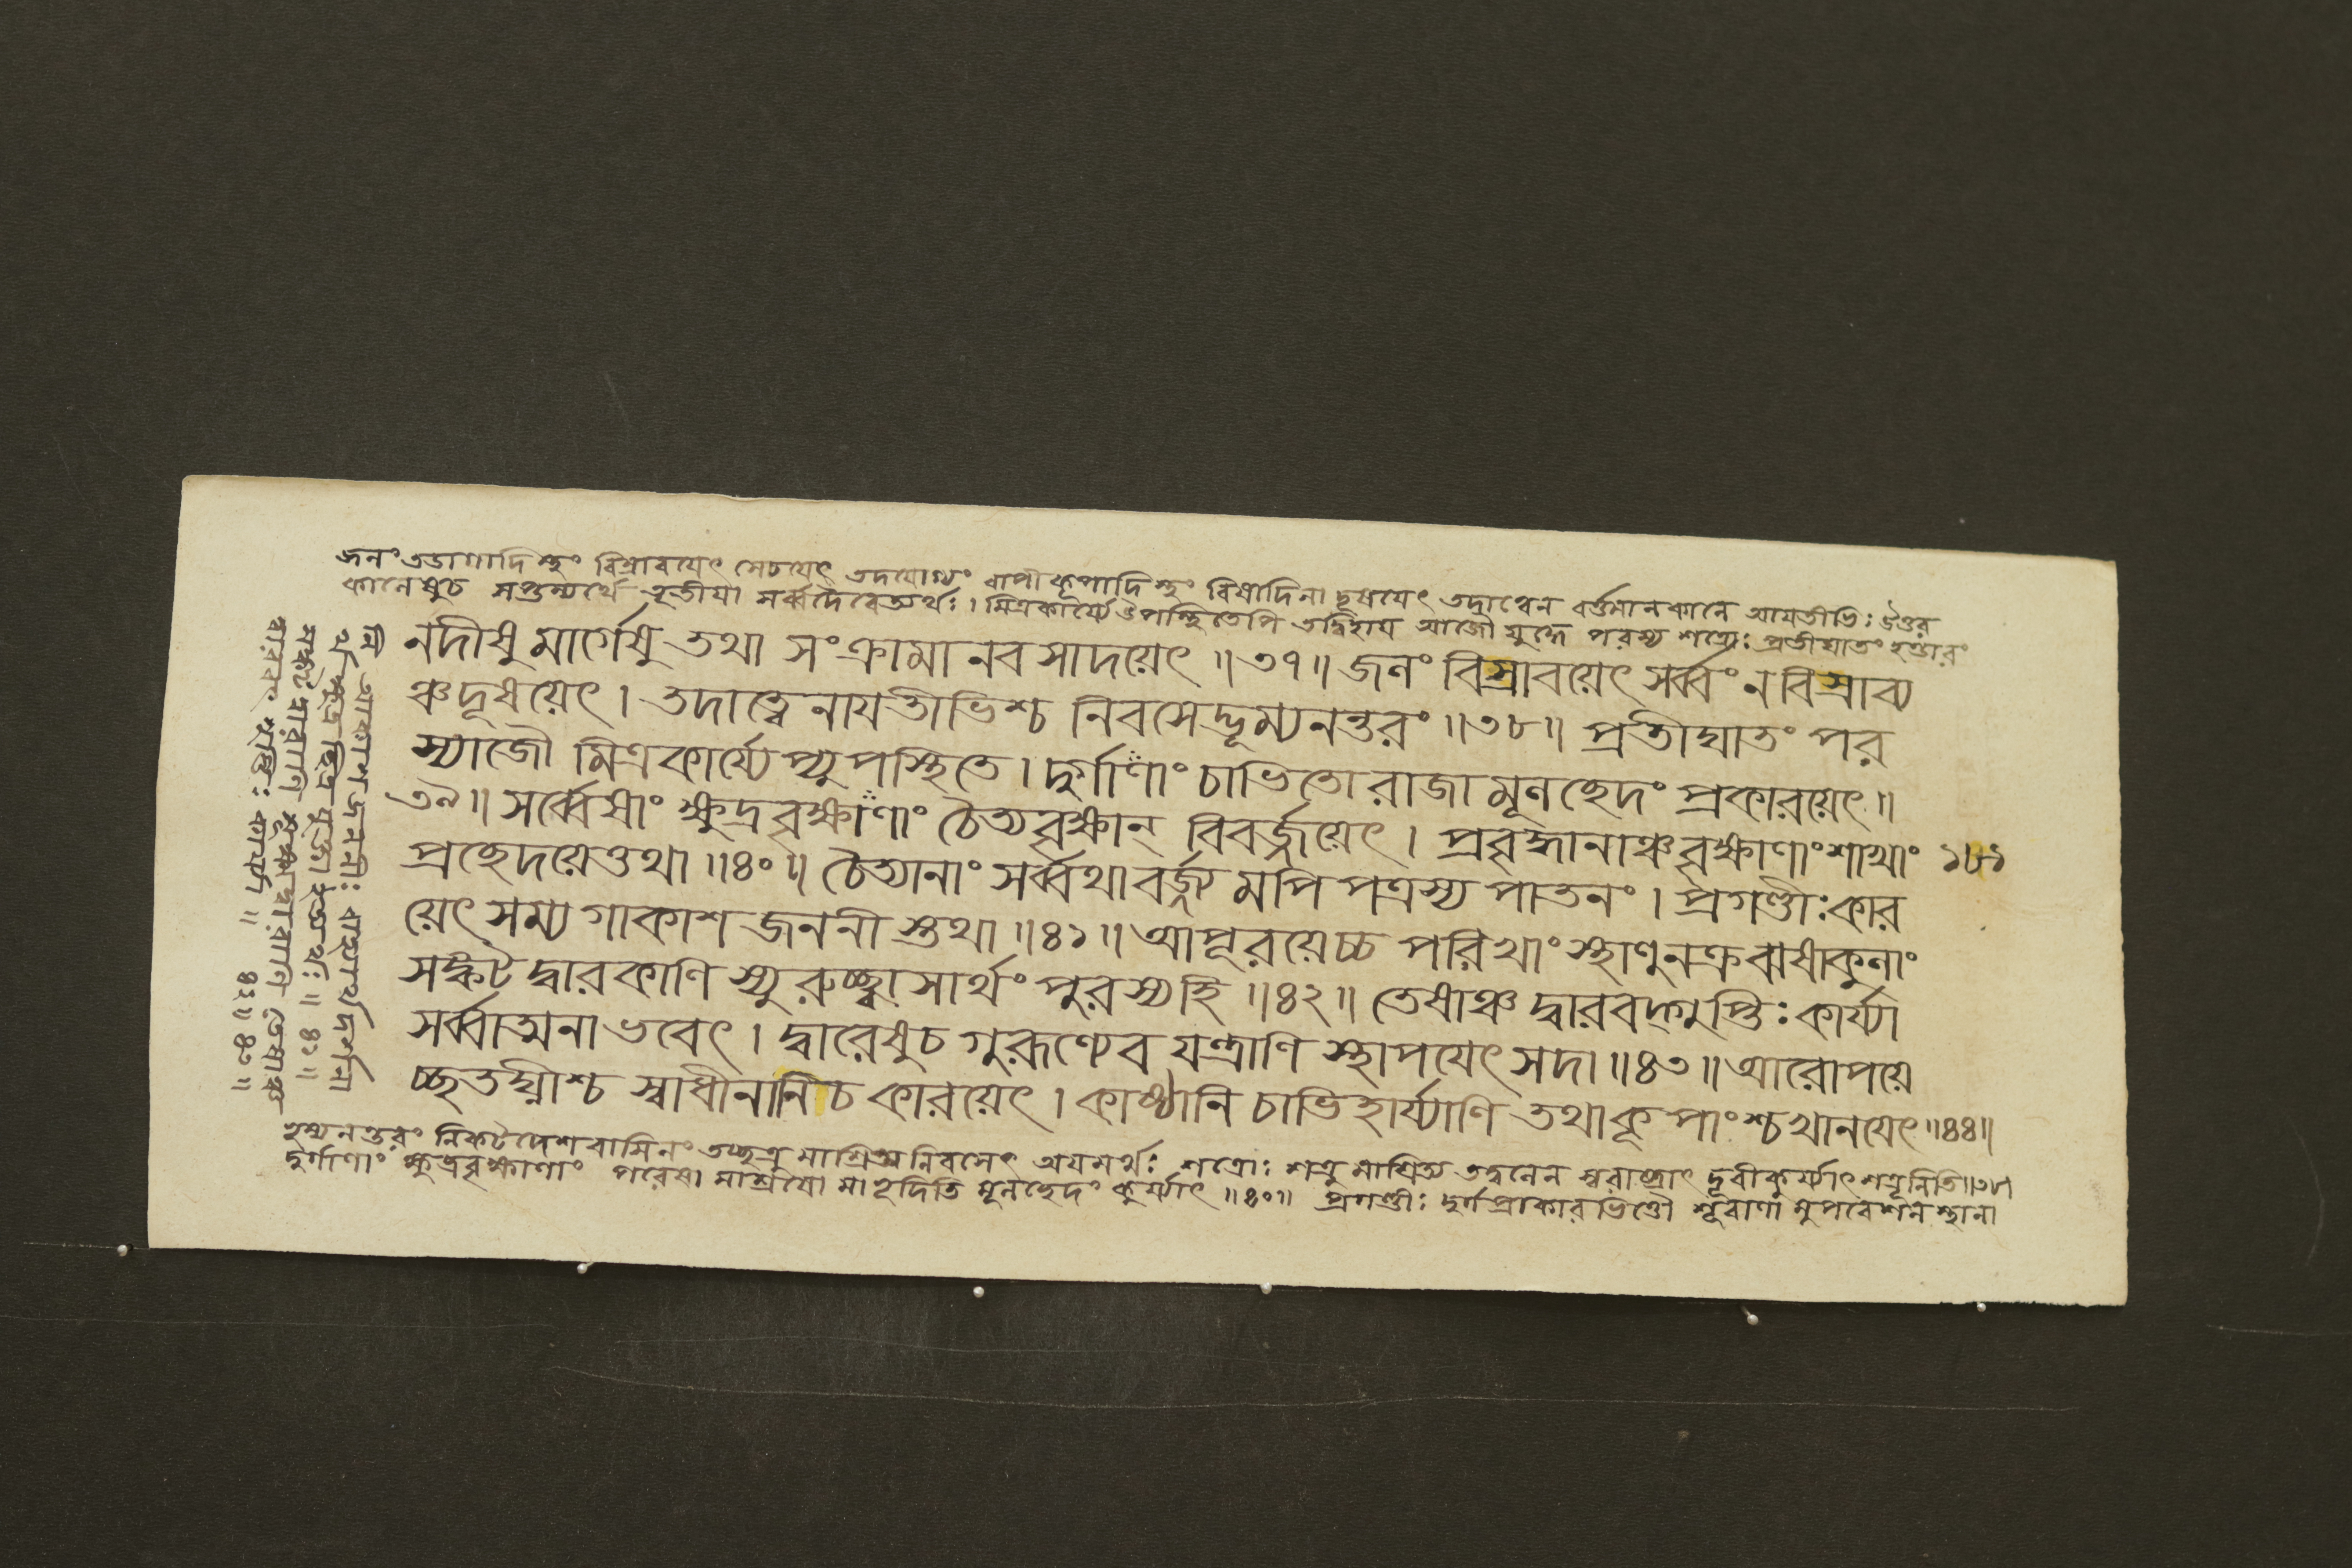 জলং তডাগাদিস্থং বিস্রাবয়েৎ সেচয়েৎ তদযোগ্যং বাপীকূপাদিস্থং বিষাদিনা দূষয়েৎ তদাত্বেন বর্ত্তমানকালে আয়তীভিঃ উত্তর
কালেষুচ সপ্তম্যর্থে তৃতীয়া সর্ব্বদৈবেত্যর্থঃ। মিত্রকার্য্যে উপস্থিতেপি তদ্বিহায় আজৌ যুদ্ধে পরস্য শত্রোঃ প্রতীঘাতং হন্তারং
নদীষু মার্গেষু তথা সংক্রামানবসাদয়েৎ ॥৩৭॥ জলং বিস্রাবয়েৎ সর্ব্বং ন বিস্রাব্য
ঞ্চ দূষয়েৎ। তদাত্বেনায়তীভিশ্চ নিবসেদ্ভূম্যনন্তরং ॥৩৮॥ প্রতীঘাতং পর
স্যাজৌ মিত্রকার্য্যেপ্যুপস্থিতে। দুর্গাণাং চাভিতো রাজা মূলছেদং প্রকারয়েৎ॥
৩৯॥ সর্ব্বেষাং ক্ষুদ্রবৃক্ষাণাং চৈত্যবৃক্ষান্ বিবর্জ্জয়েৎ। প্রবৃদ্ধানাঞ্চ বৃক্ষাণাং শাখাং ১৮১
প্রছেদয়েত্তথা ॥৪০॥ চৈত্যানাং সর্ব্বথা বর্জ্জ্যমপি পত্রস্য পাতনং। প্রগণ্ডীঃ কার
য়েৎ সম্যগাকাশজননীস্তথা ॥৪১॥ আপূরয়েচ্চ পরিখাং স্থাণুনক্রঝষাকুলাং
সঙ্কটদ্বারকাণি স্যুরুচ্ছ্বাসার্থং পুরস্য হি ॥৪২॥ তেষাঞ্চ দ্বারবদ্গুপ্তিঃ কার্য্যা
সর্ব্বাত্মনা ভবেৎ। দ্বারেষুচ গুরূণ্যেব যন্ত্রাণি স্থাপয়েৎ সদা ॥৪৩॥ আরোপয়ে
চ্ছতঘ্নীশ্চ স্বাধীনানি চ কারয়েৎ। কাষ্ঠানি চাভিহার্য্যাণি তথা কূপাংশ্চ খানয়েৎ॥৪৪॥
ভূম্যনন্তরং নিকটদেশবাসিনং তচ্ছত্রুমাশ্রিত্য নিবসেৎ অয়মর্থঃ শত্রোঃ শত্রুমাশ্রিত্য তদ্বলেন স্বরাষ্ট্রাৎ দূরীকুর্য্যাৎ শত্রূনিতি॥৩৯॥
দুর্গাণাং ক্ষুদ্রবৃক্ষাণাং পরেষামাশ্রয়ো মাভূদিতি মূলছেদং কুর্য্যাৎ ॥৪০॥ প্রগণ্ডীঃ দুর্গপ্রাকারভিত্তৌ শূরাণামুপবেশনস্থানা
নি আকাশজননীঃ বাহ্যার্থদর্শনা
র্থং ক্ষুদ্রছিদ্রযুক্তা ইত্যর্থঃ ॥৪১॥
সঙ্কটদ্বারাণি সূক্ষ্মদ্বারাণি তেষাঞ্চ
দ্বারবৎ গুপ্তিঃ কার্য্যা ॥ ৪২॥৪৩॥